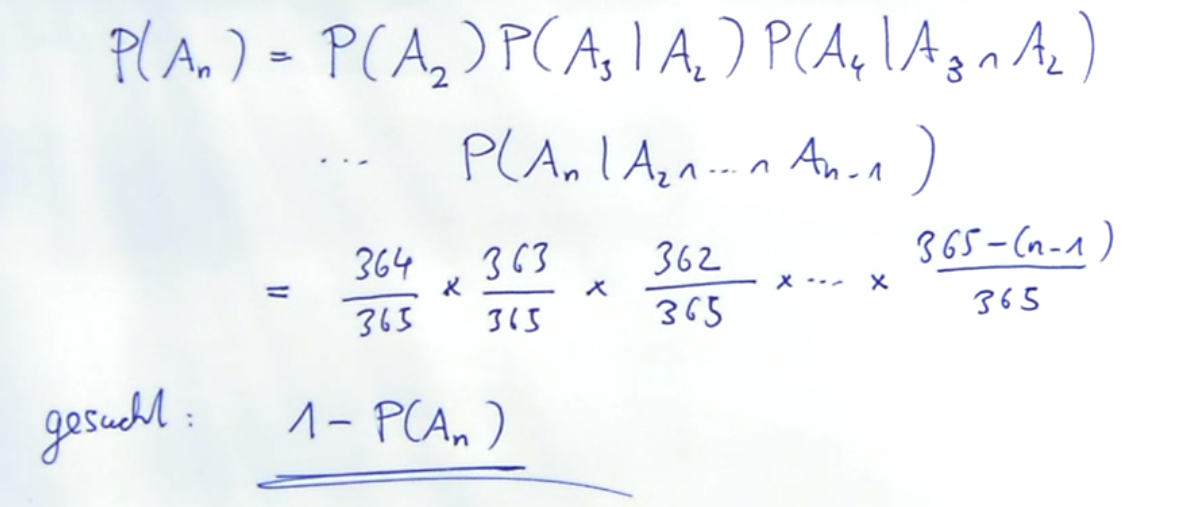 P(Aₙ) = P(A₂) P(A₃ | A₂) P(A₄ | A₃ ∩ A₂)
... P(Aₙ | A₂ ∩ ... ∩ Aₙ₋₁)
= 364/365 × 363/365 × 362/365 × ... × 365-(n-1)/365
gesucht: 1 - P(Aₙ)